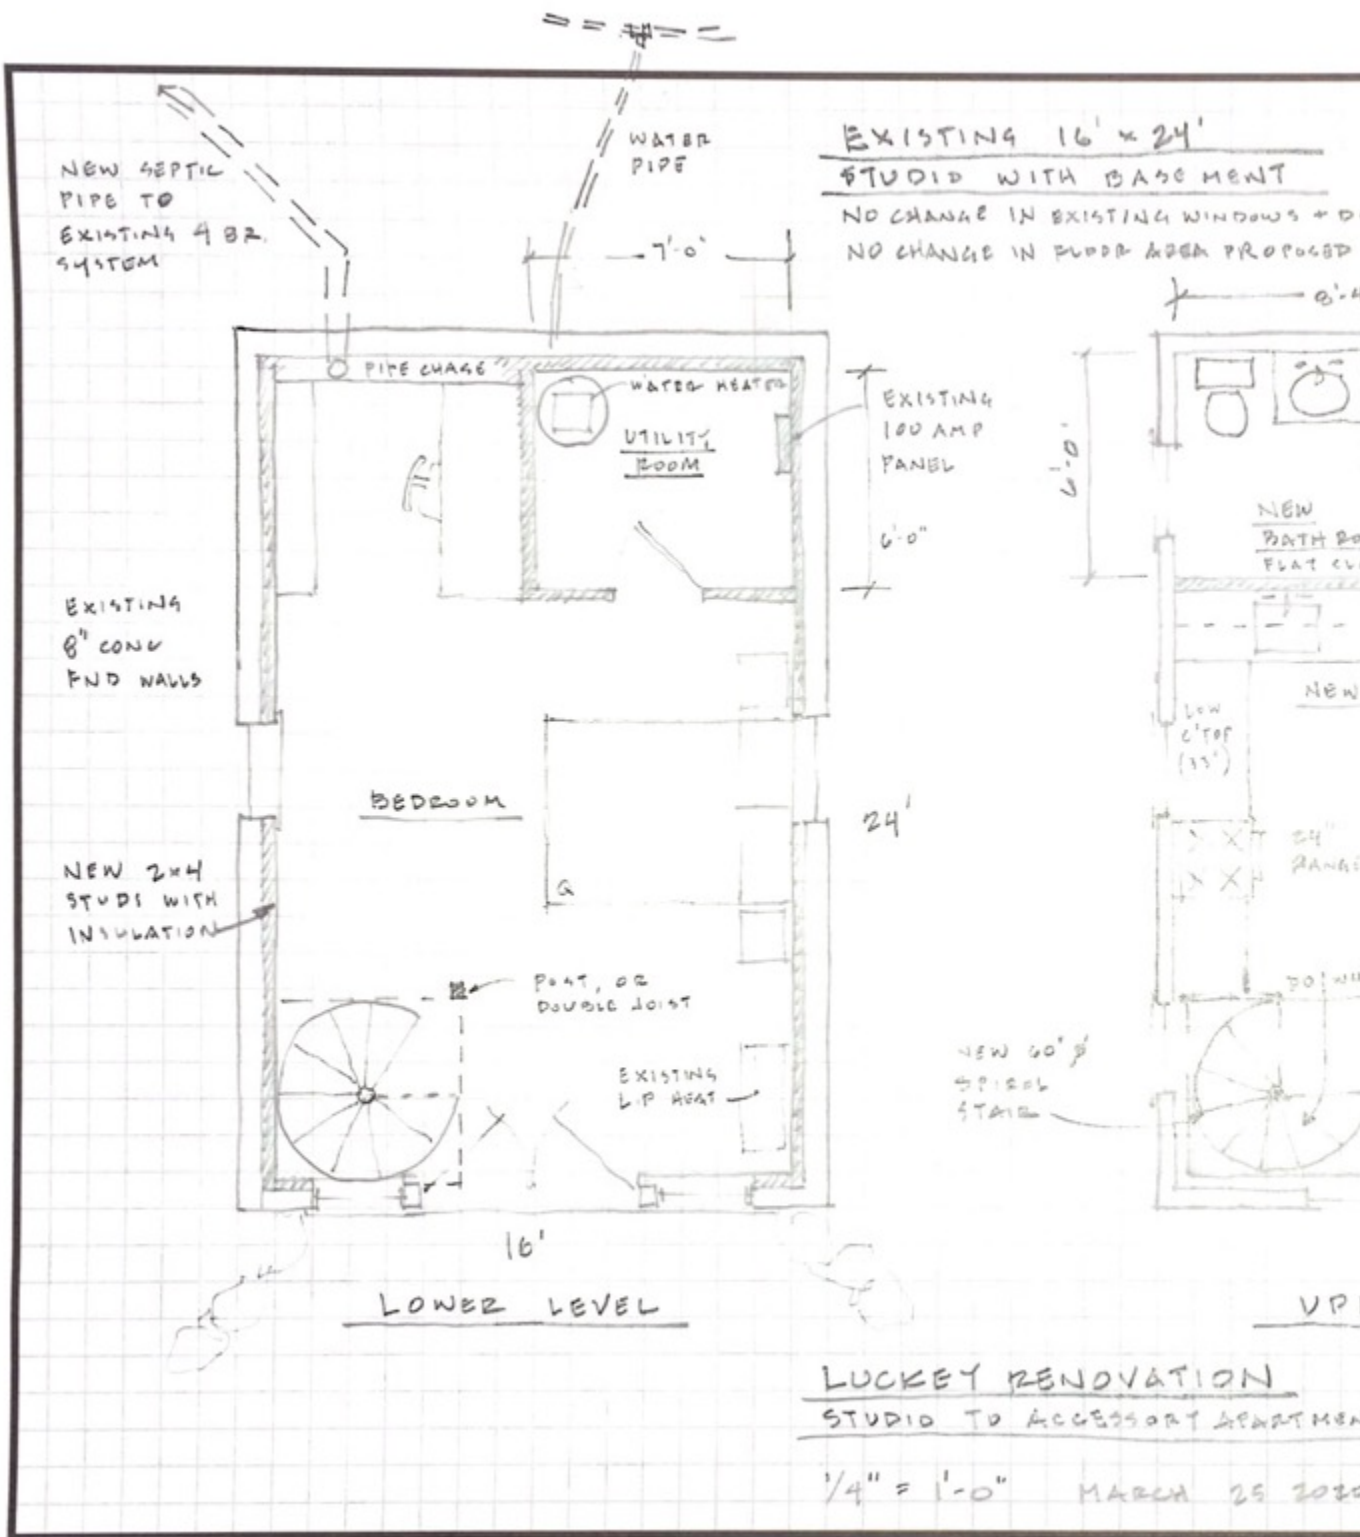 WATER
PIPE
EXISTING 16' x 24'
STUDIO WITH BASEMENT
NO CHANGE IN EXISTING WINDOWS + D
NO CHANGE IN FLOOR AREA PROPOSED
NEW SEPTIC
PIPE TO
EXISTING 4 BR.
SYSTEM
7'-0"
8'-4
PIPE CHASE
WATER HEATER
UTILITY
ROOM
EXISTING
100 AMP
PANEL
6'-0"
6'-0"
NEW
BATH RO
FLAT CL
EXISTING
8" CONC
FND WALLS
NEW
LOW
C'TOP
(33")
BEDROOM
24'
24"
RANGE
NEW 2x4
STUDS WITH
INSULATION
Q
POST, OR
DOUBLE JOIST
EXISTING
L.P. HEAT
NEW 60" ø
SPIRAL
STAIR
16'
LOWER LEVEL
UP
LUCKEY RENOVATION
STUDIO TO ACCESSORY APARTMEN
1/4" = 1'-0" MARCH 25